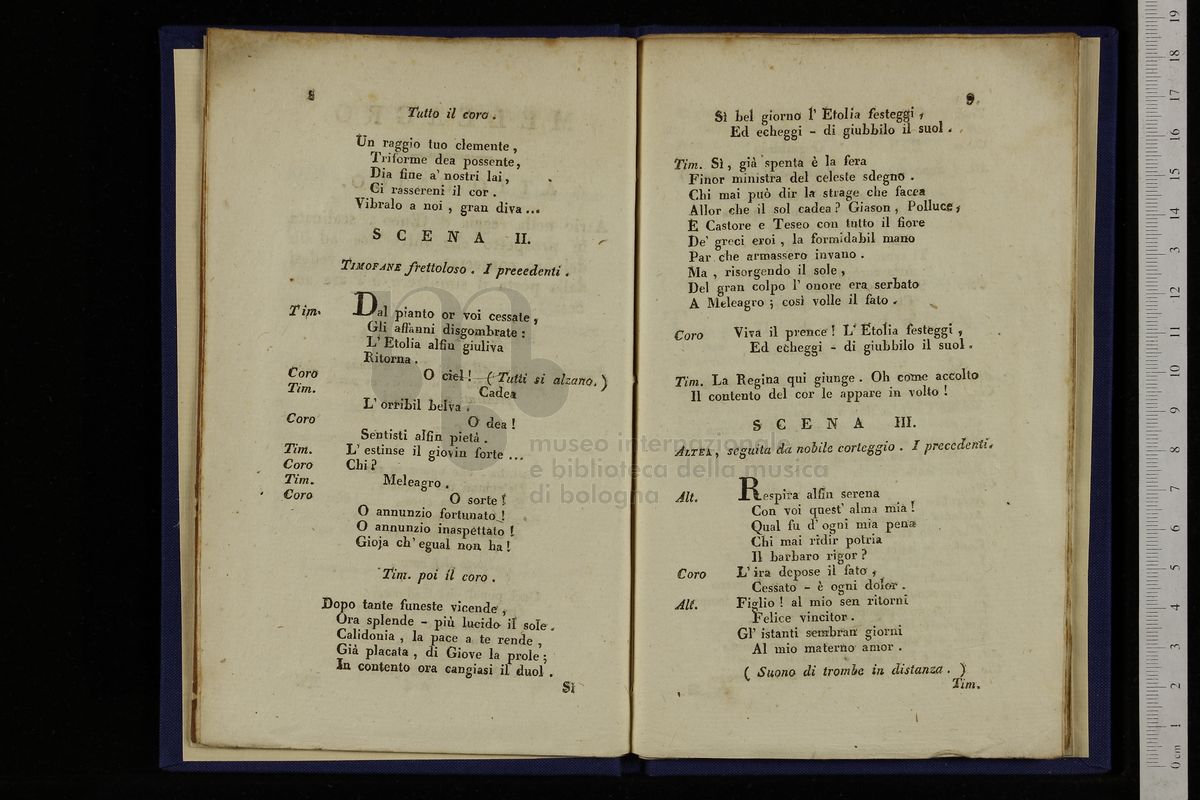 8
Tutto il coro.
Un raggio tuo clemente,
Triforme dea possente,
Dia fine a' nostri lai,
Ci rassereni il cor.
Vibralo a noi, gran diva...
SCENA II.
TIMOFANE frettoloso. I preeedenti.
Tim. Dal pianto or voi cessate,
Gli affanni disgombrate:
L'Etolia alfin giuliva
Ritorna.
Coro O ciel! (Tutti si alzano.)
Tim. Cadea
L'orribil belva.
Coro O dea!
Sentisti alfin pietà.
Tim. L'estinse il giovin forte...
Coro Chi?
Tim. Meleagro.
Coro O sorte!
O annunzio fortunato!
O annunzio inaspettato!
Gioja ch'egual non ha!
Tim. poi il coro.
Dopo tante funeste vicende,
Ora splende - più lucido il sole.
Calidonia, la pace a te rende,
Già placata, di Giove la prole;
In contento ora cangiasi il duol.
Sì
9
Sì bel giorno l'Etolia festeggi,
Ed echeggi - di giubbilo il suol.
Tim. Sì, già spenta è la fera
Finor ministra del celeste sdegno.
Chi mai può dir la strage che facea
Allor che il sol cadea? Giason, Polluce,
E Castore e Teseo con tutto il fiore
De' greci eroi, la formidabil mano
Par che armassero invano.
Ma, risorgendo il sole,
Del gran colpo l'onore era serbato
A Meleagro; così volle il fato.
Coro Viva il prence! L'Etolia festeggi,
Ed echeggi - di giubbilo il suol.
Tim. La Regina qui giunge. Oh come accolto
Il contento del cor le appare in volto!
SCENA III.
ALTEA, seguita da nobile corteggio. I precedenti.
Alt. Respira alfin serena
Con voi quest'alma mia!
Qual fu d'ogni mia pena
Chi mai ridir potria
Il barbaro rigor?
Coro L'ira depose il fato,
Cessato - è ogni dolor.
Alt. Figlio! al mio sen ritorni
Felice vincitor.
Gl'istanti sembran giorni
Al mio materno amor.
(Suono di trombe in distanza.)
Tim.
museo internazionale
e biblioteca della musica
di bologna
0 cm 1 2 3 4 5 6 7 8 9 10 11 12 13 14 15 16 17 18 19